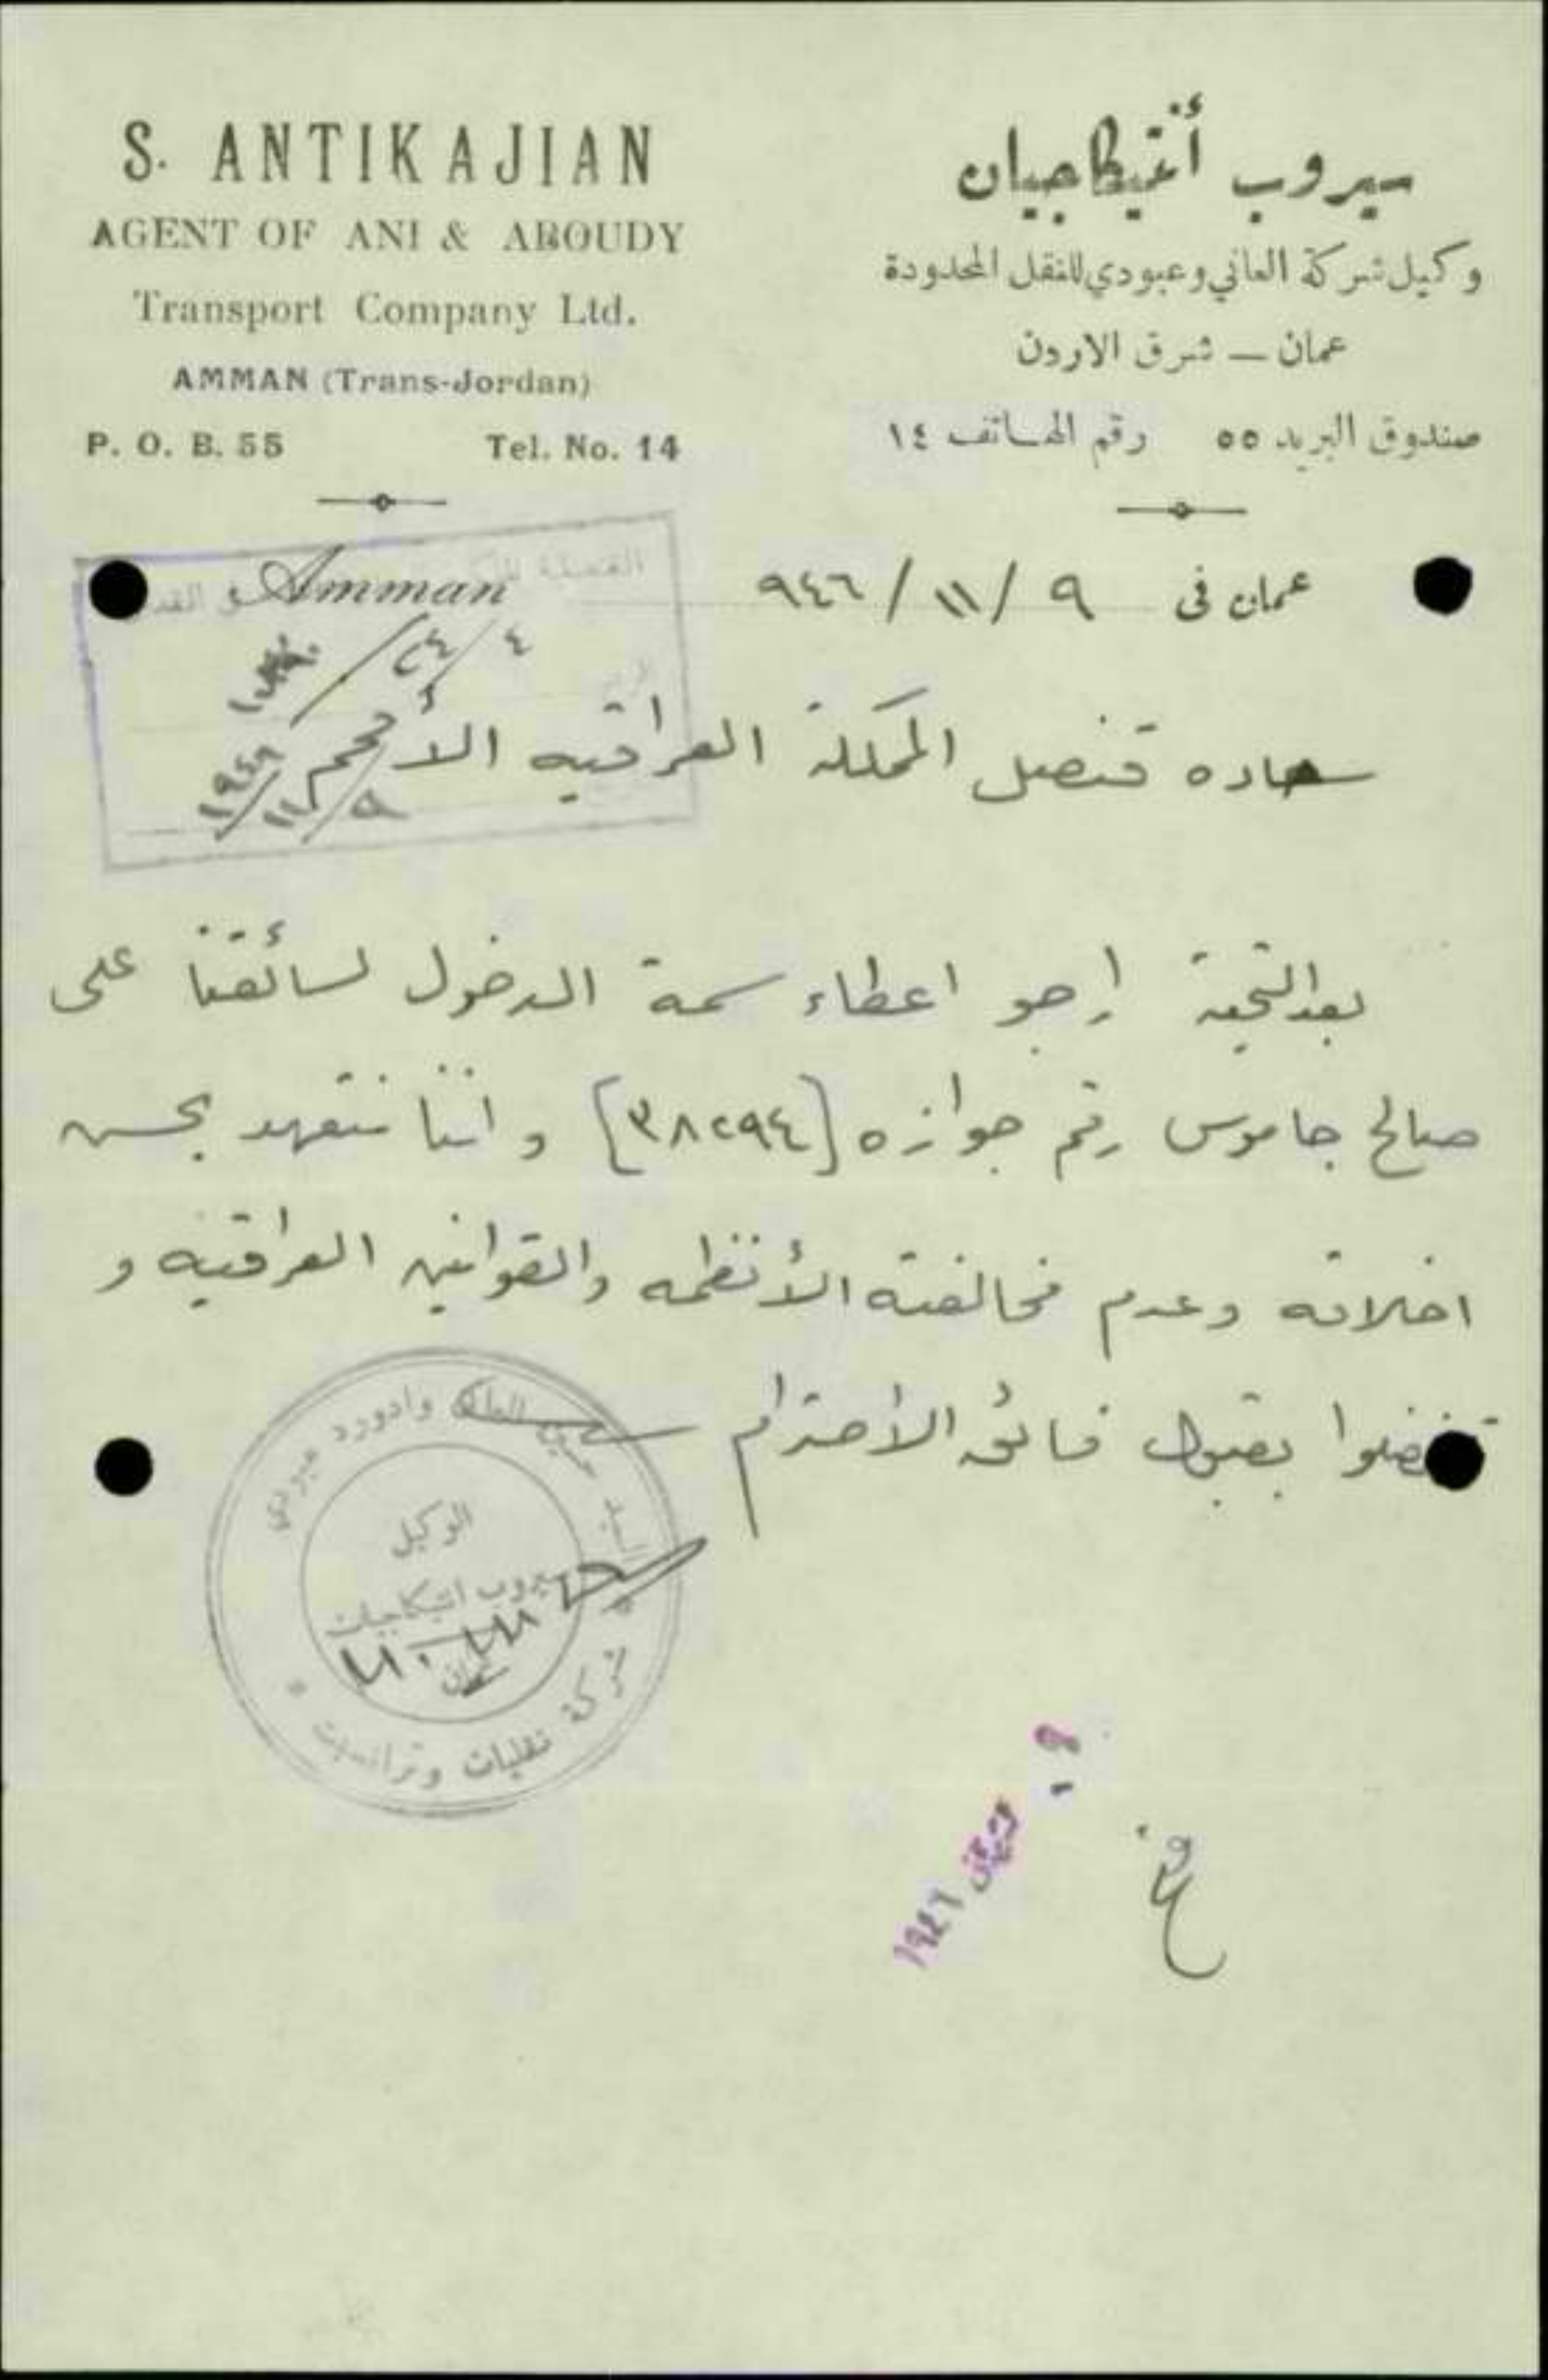 S. ANTIKAJIAN
AGENT OF ANI & ABOUDY
Transport Company Ltd.
AMMAN (Trans-Jordan)
P. O. B. 55 Tel. No. 14
سيروب أنتيكاجيان
وكيل شركة العاني وعبودي للنقل المحدودة
عمان — شرق الاردن
صندوق البريد ٥٥ رقم الهاتف ١٤
Amman
عمان في ٩ / ١١ / ٩٤٦
٤/٢٤/
٩/١١/١٩٤٦
سعاده قنصل المملكة العراقيه الأفخم
بعد التحية ارجو اعطاء سمة الدخول لسائقنا على
صالح جاموس رقم جوازه [٣٨٢٩٤] واننا نتعهد بحسن
اخلاقه وعدم مخالفته الأنظمه والقوانين العراقيه و
تفضلوا بقبول فائق الأحترام
وادورد عبودي
الوكيل
سيروب انتيكاجيان
عمان
شركة نقليات وترانسيت
٩ - ١٩٤٦